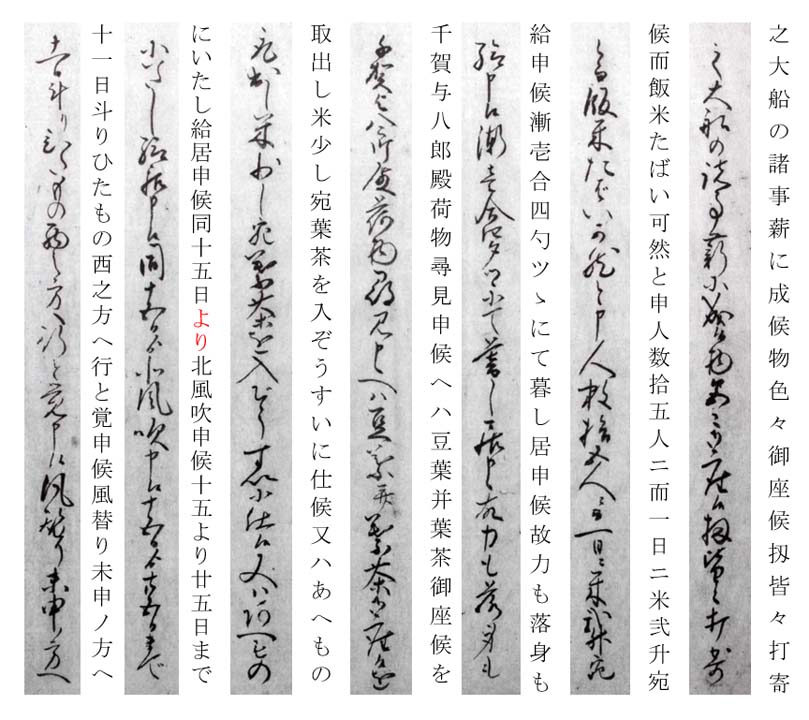 之大船の諸事薪に成候物色々御座候扨皆々打寄
候而飯米たばい可然と申人数拾五人ニ而一日ニ米弐升宛
給申候漸壱合四勺ツヽにて暮し居申候故力も落身も
千賀与八郎殿荷物尋見申候へハ豆葉并葉茶御座候を
取出し米少し宛葉茶を入ぞうすいに仕候又ハあへもの
にいたし給居申候同十五日より北風吹申候十五より廿五日まで
十一日斗りひたもの西之方へ行と覚申候風替り未申ノ方へ